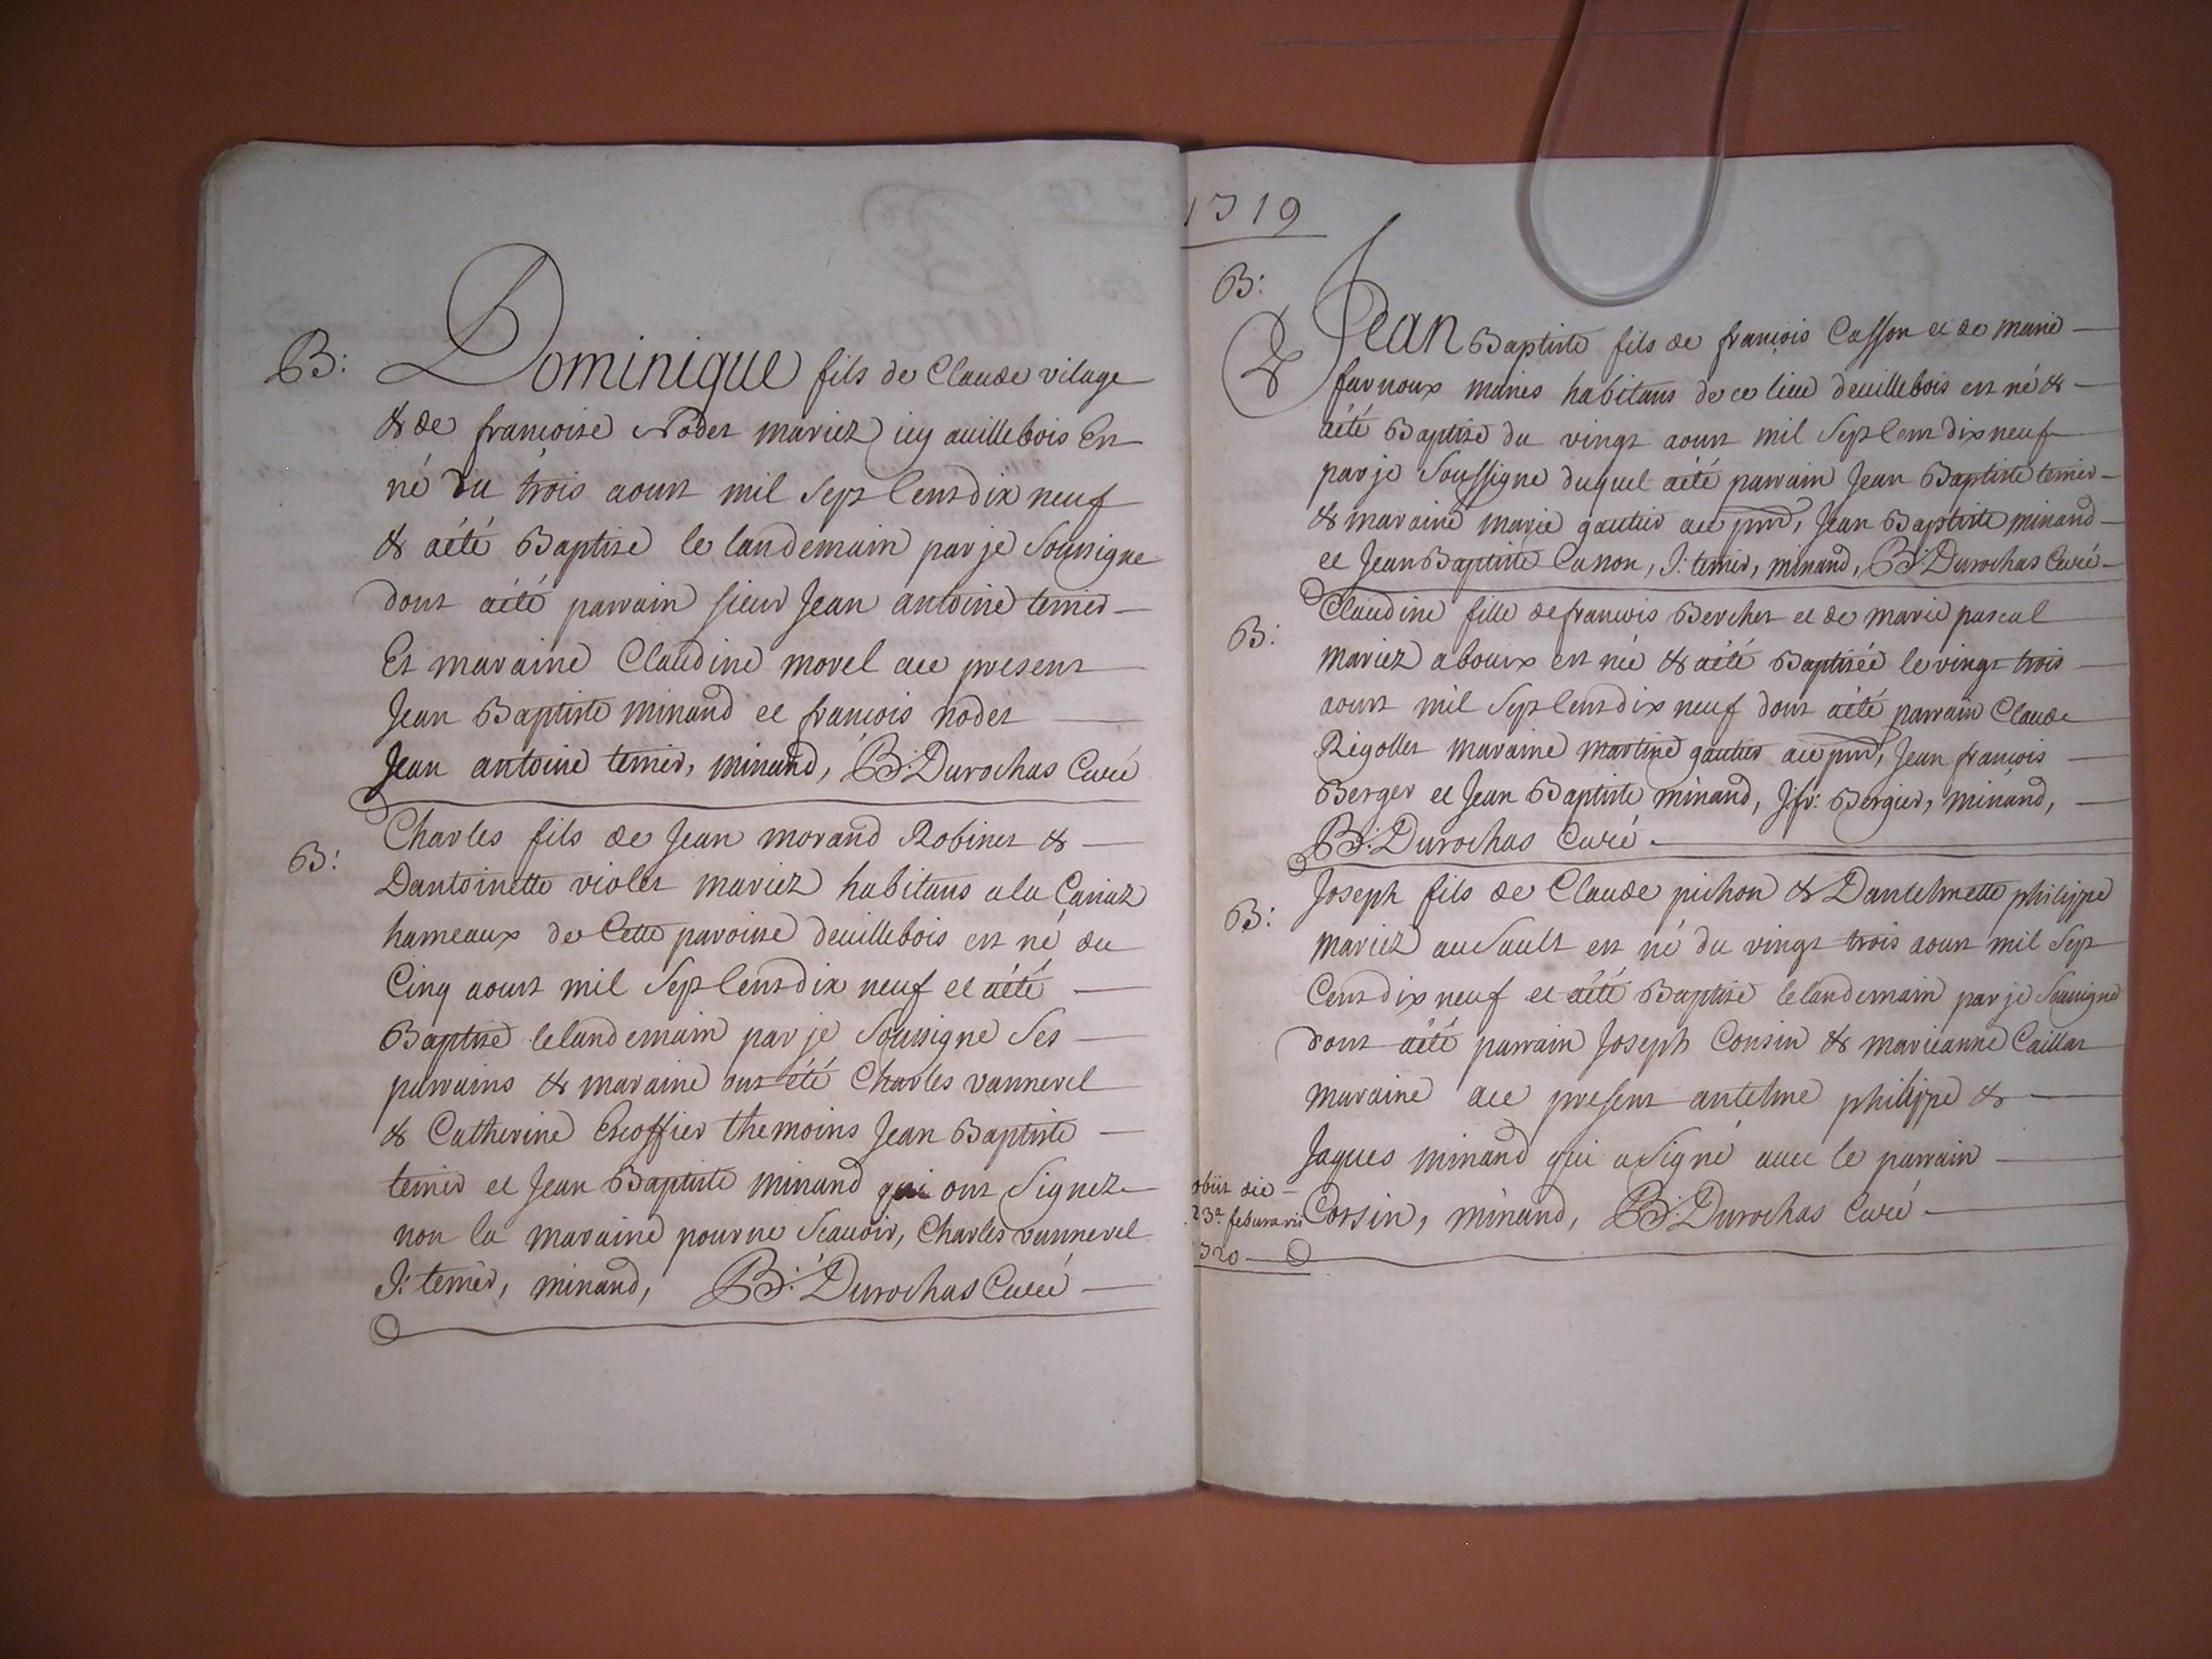 B: Dominique fils de Claude vilage
& de francoise Nodet mariez icy auillebois Est
né du trois aoust mil Sept Cent dix neuf
& aété Baptisé le landemain par je Soussigne
dont aété parrain sieur Jean antoine ternier
Et maraine Claudine morel ace present
Jean Baptiste minand et francois nodet
Jean antoine ternier, minand, B: Durochas Curé
B: Charles fils de Jean morand Robinet &
Dantoinette violet mariez habitans a la
hameaux de Cette paroisse deuillebois est né du
Cinq aoust mil Sept Cent dix neuf et aété
Baptisé le landemain par je Soussigne Ses
parrains & maraine ont été Charles vannerel
& Catherine Escoffier themoins Jean Baptiste
ternier et Jean Baptiste minand qui ont Signez
non la maraine pour ne Scauoir, Charles vannerel
J: ternier, minand, B: Durochas Curé
1719
B: Jean Baptiste fils de francois Casson et de marie
farnoux mariés habitans de ce lieu deuillebois est né &
aété Baptisé du vingt aoust mil Sept Cent dix neuf
par je Soussigne duquel aété parrain Jean Baptiste ternier
& maraine marie gautier ace pnt, Jean Baptiste minand
et Jean Baptiste Casson, J: ternier, minand, B: Durochas Curé
B: Claudine fille de francois Berchet et de marie pascal
mariez a bouix est née & aété Baptisée le vingt trois
aoust mil Sept Cent dix neuf dont aété parrain Claude
Rigollet maraine martine gautier ace pnt, Jean francois
Berger et Jean Baptiste minand, J: fr: Bergier, minand,
B: Durochas Curé
B: Joseph fils de Claude pichon & Dantelmette philippe
mariez au Sault est né du vingt trois aoust mil Sept
Cent dix neuf et aété Baptisé le landemain par je Soussigné
dont aété parrain Joseph Consin & marieanne Caillat
maraine ace present antelme philippe &
Jaques minand qui a Signé auec le parrain
Corsin, minand, B: Durochas Curé
obiit die
23a februaris
1720